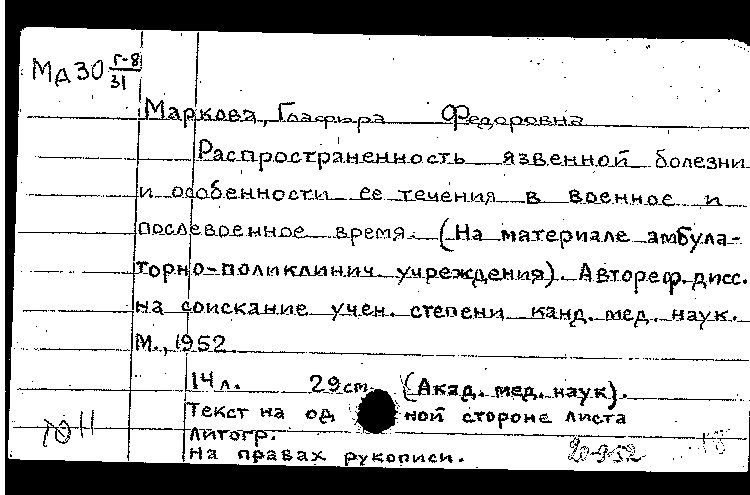 МД30 Г-8
31
Маркова, Глафира Федоровна
Распространенность язвенной болезни
и особенности ее течения в военное и
послевоенное время. (На материале амбула-
торно-поликлинич. учреждения). Автореф. дисс.
на соискание учен. степени канд. мед. наук.
М., 1952.
14 л. 29 см. (Акад. мед. наук).
Текст на од ной стороне листа
Литогр.
На правах рукописи.
20-9-52 18